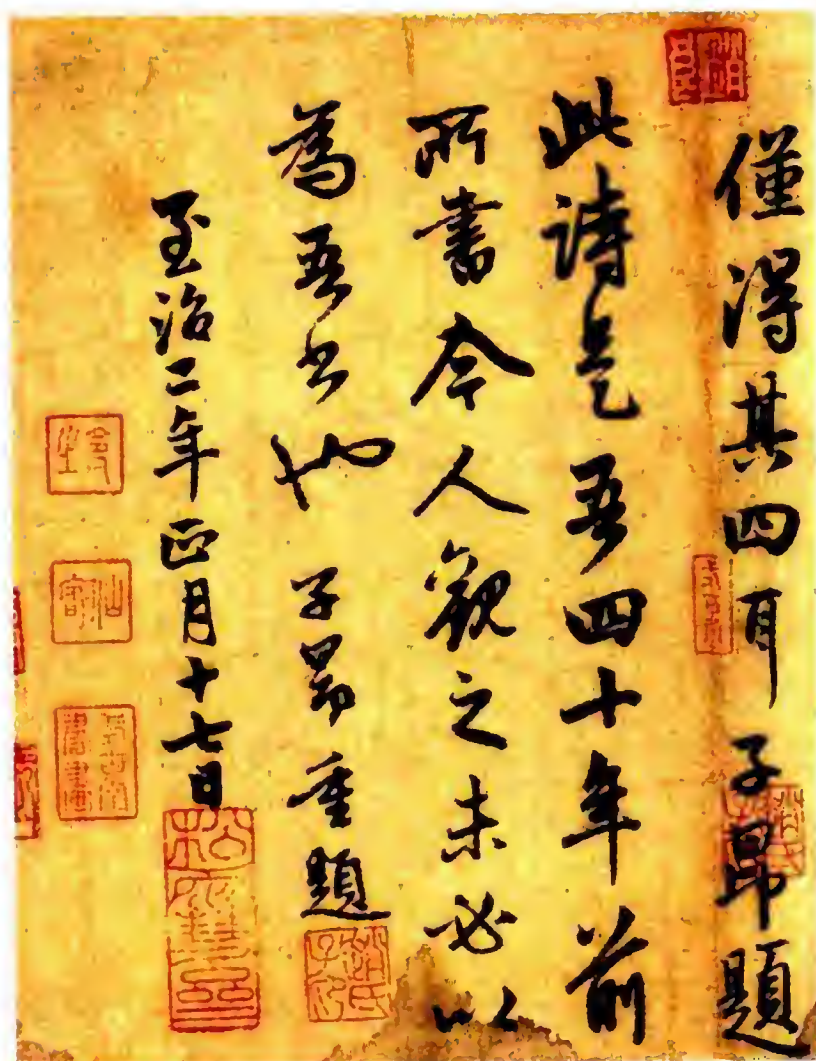 僅得其四耳子昂題
此詩是吾四十年前
所書今人觀之未必以
為吾書也子昂重題
至治二年正月十七日
趙氏子昂
松雪齋